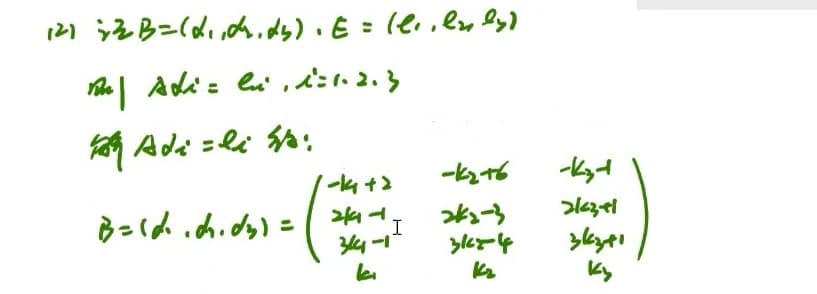 (2) 设B=(α₁,α₂,α₃), E=(e₁,e₂,e₃)
则 Aαi=ei, i=1.2.3
解Aαi=ei得:
B=(α₁,α₂,α₃)=
-k₁+2 -k₂+6 -k₃-1
2k₁-1 2k₂-3 2k₃+1
3k₁-1 3k₂-4 3k₃+1
k₁ k₂ k₃